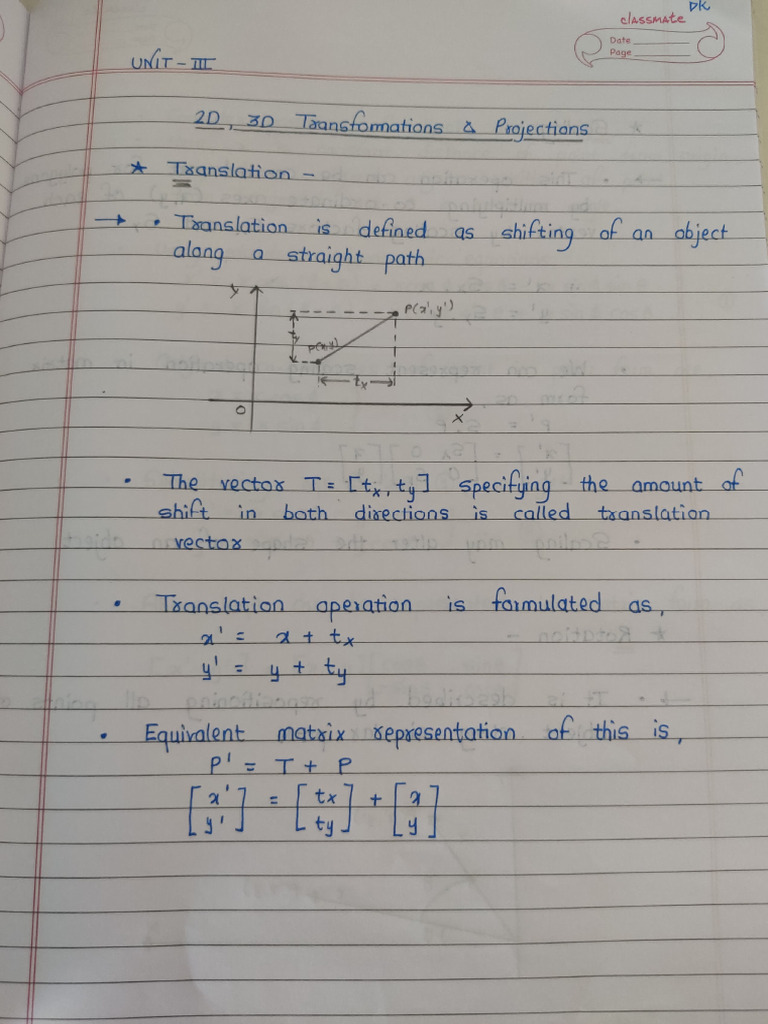 DK
classmate
Date
Page
UNIT - III
2D, 3D Transformations & Projections
* Translation -
→ • Translation is defined as shifting of an object
along a straight path
y
P(x', y')
ty
P(x,y)
tx
O
x
• The vector T = [tx, ty] specifying the amount of
shift in both directions is called translation
vector
• Translation operation is formulated as,
x' = x + tx
y' = y + ty
• Equivalent matrix representation of this is,
P' = T + P
[x' = [tx + [x
y'] ty] y]